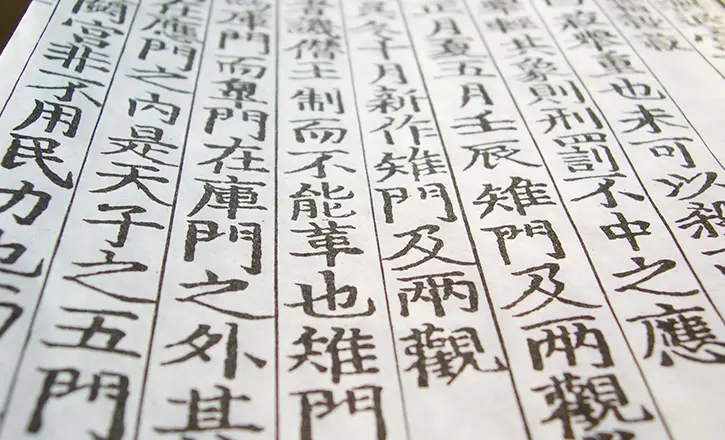 殺舉重也未可以殺
輕其象則刑罰不中之應
正月夏五月壬辰雉門及兩觀
冬十月新作雉門及兩觀
書譏僭王制而不能革也雉門
庫門而臯門在庫門之外其
在應門之内是天子之五門
宮非不用民力也而